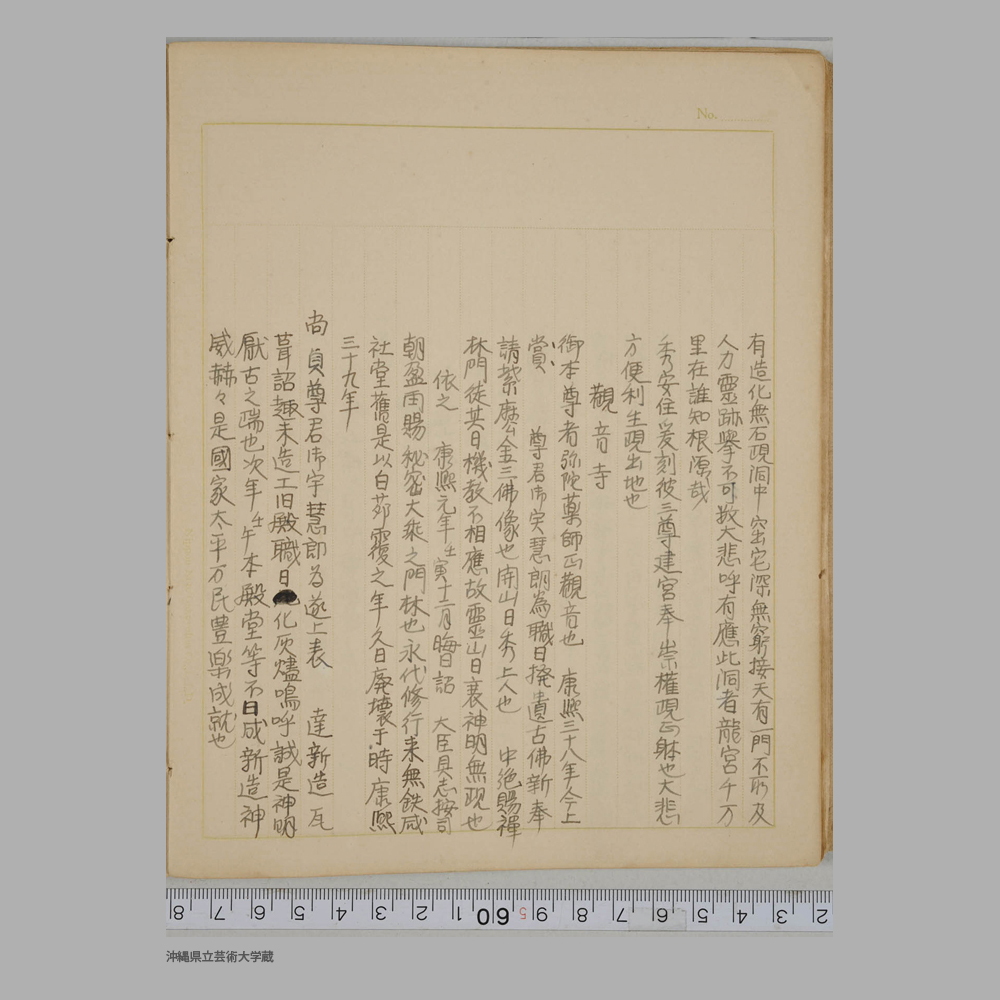 No.
有造化無石現洞中突出宅深無窮接天有一門不所及
人力靈跡擧不可数大悲呼有應此洞者龍宮千万
里在誰知根源哉
秀安住爰刻彼三尊建宮奉崇權現正躰也大悲
方便利生現出地也
觀音寺
御本尊者弥陀藥師正觀音也 康熙三十八年今上
賞 尊君御実慧朗為職日挍遺古佛新奉
請紫麽金三佛像也開山日秀上人也 中絶賜禪
林門徒其日機教不相應故靈山日衰神明無現也
依之 康熙元年壬寅十二月晦日詔 大臣具志按司
朝盈因賜秘密大乘之門林也永代修行来無鉄咸
社堂舊是以白茆覆之年久日廃壊于時康熙
三十九年
尚貞尊君御宇慧郎為遂上表 達新造瓦
葺詔趣未造工旧殿職日化灰燼嗚呼誠是神明
厭古之端也次年壬午本殿堂等不日成新造神
威赫々是國家太平万民豊楽成就也
8 7 6 5 4 3 2 1 60 5 9 8 7 6 5 4 3 2
沖縄県立芸術大学蔵